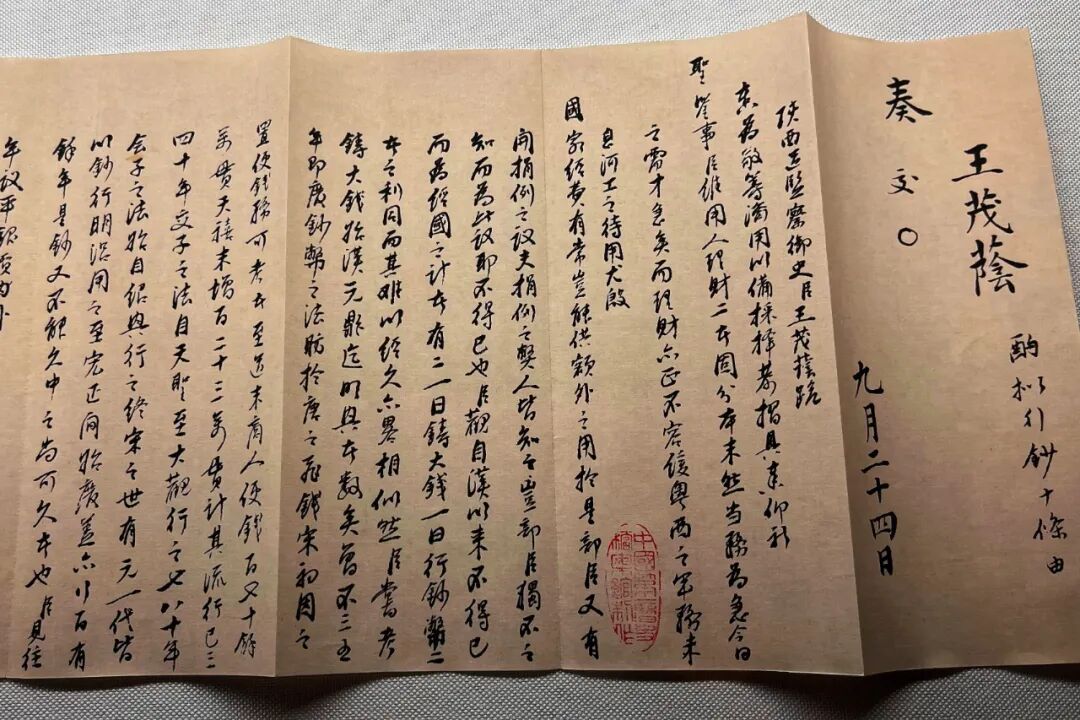 王茂蔭
酌拟行鈔十條由
奏 交 〇
九月二十四日
陝西道監察御史臣王茂蔭跪
奏為敬籌濟用以備採擇恭摺具奏仰祈
聖鑒事臣維用人理財二者固分本末然当務為急今日
之需才急矣而理財亦正不容緩粵西之軍務未
息河工之待用尤殷
國家經費有常豈能供額外之用於是部臣又有
開捐例之議夫捐例之弊人皆知之豈部臣獨不之
知而為此議耶不得已也臣觀自漢以來不得已
而為經國之計者有二一曰鑄大錢一曰行鈔幣二
者之利同而其難以經久亦畧相似然臣嘗考
鑄大錢始漢元鼎迄明興者數矣曾不三五
年即廢鈔幣之法昉於唐之飛錢宋初因之
置便錢務可考者至道末商人便錢百七十餘
萬貫天禧末增百一十三萬貫計其流行已三
四十年交子之法自天聖至大觀行之七八十年
会子之法始自紹興行之終宋之世有元一代皆
以鈔行明沿用之至宏正間始廢蓋亦行百有
餘年是鈔又不能久中之尚可久者也臣見往
年议平銀價內外